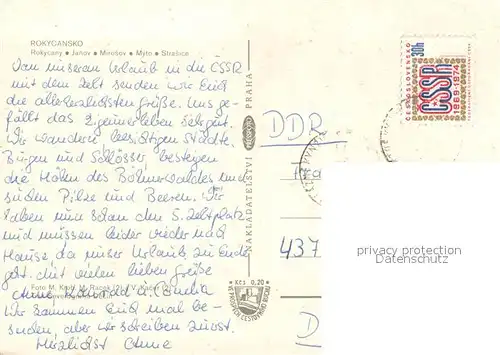 ROKYCANSKO
Rokycany • Janov • Mirošov • Mýto • Strašice
Von unserem Urlaub in die ČSSR
mit dem Zelt senden wir Euch
die allerherzlichsten Grüße. Uns ge-
fällt das Zigeunerleben sehr gut.
Wir wandern, besichtigen Städte,
Burgen und Schlösser, besteigen
die Höhen des Böhmerwaldes und
suchen Pilze und Beeren. Wir
haben nun schon den 5. Zeltplatz
und müssen leider wieder nach
Hause, da unser Urlaub zu Ende
geht. Mit vielen lieben Grüße
Anne, u. Camilla
Wir kommen Euch mal be-
suchen, aber wir schreiben zuvor.
Herzlichst Anne
Foto M. Krob, M. Raček (2), V. Kačer (2)
NAKLADATELSTVÍ
PRESSFOTO
PRAHA
XC: 0,20
DDR
437
D
ČESKOSLOVENSKO
30h
ČSSR
1969-1974
privacy protection